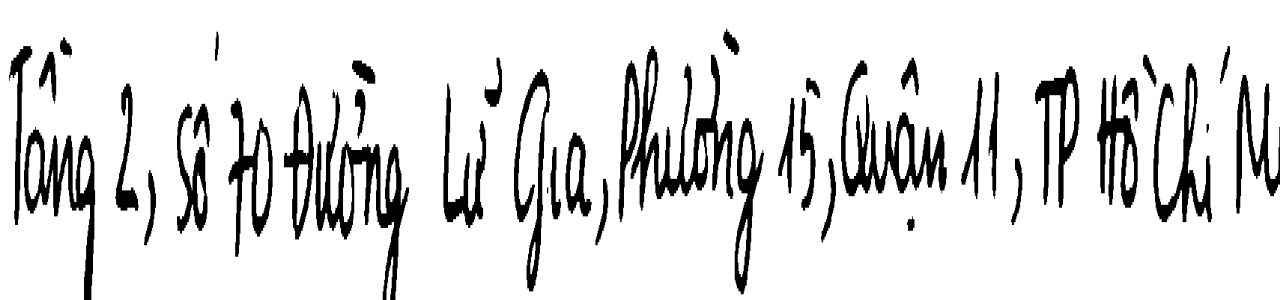 Tầng 2, Số 70 Đường Lữ Gia, Phường 15, Quận 11, TP Hồ Chí M